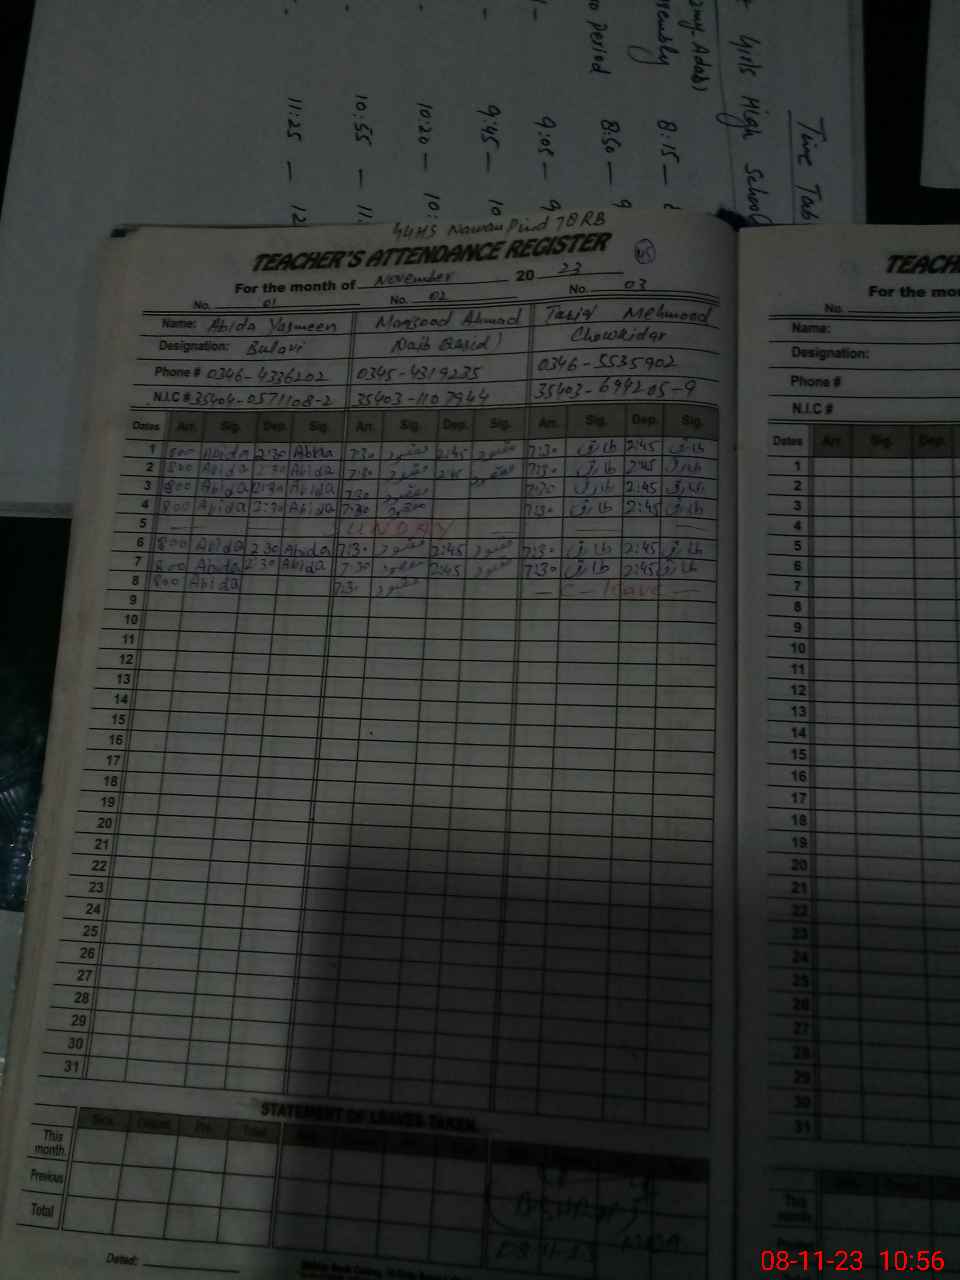 Time Tab
Girls High School
ssembly
o Period
8:15 —
8:50 — 9
9:05 — 9
9:45 — 10
10:20 — 10:
10:55 — 11:
11:25 — 12
GGHS Nawan Pind 78 RB
TEACHER'S ATTENDANCE REGISTER
For the month of November 20 23
No. 01 No. 02 No. 03
Name: Abida Yasmeen Maqsood Ahmad Tariq Mehmood
Designation: Bulavi Naib Qasid Chowkidar
Phone # 0346-4336202 0345-4319235 0346-5535902
N.I.C # 35404-0571108-2 35403-1107944 35403-6992105-9
Dates Arr. Sig. Dep. Sig. Arr. Sig. Dep. Sig. Arr. Sig. Dep. Sig.
1 800 Abida 2:30 Abida 7:30 مقصود 2:45 مقصود 7:30 طارق 2:45 طارق
2 800 Abida 2:30 Abida 7:30 مقصود 2:45 مقصود 7:30 طارق 2:45 طارق
3 800 Abida 2:30 Abida 7:30 مقصود 7:30 طارق 2:45 طارق
4 800 Abida 2:30 Abida 7:30 مقصود 7:30 طارق 2:45 طارق
5 — UNDAY —
6 800 Abida 2:30 Abida 7:30 مقصود 2:45 مقصود 7:30 طارق 2:45 طارق
7 800 Abida 2:30 Abida 7:30 مقصود 2:45 مقصود 7:30 طارق 2:45 طارق
8 800 Abida 7:30 مقصود — C — leave —
9
10
11
12
13
14
15
16
17
18
19
20
21
22
23
24
25
26
27
28
29
30
31
STATEMENT OF LEAVES TAKEN
This month
Previous
Total
Dated:
TEACH
For the mo
No.
Name:
Designation:
Phone #
N.I.C #
Dates Arr. Sig. Dep.
1
2
3
4
5
6
7
8
9
10
11
12
13
14
15
16
17
18
19
20
21
22
23
24
25
26
27
28
29
30
31
This month
08-11-23 10:56